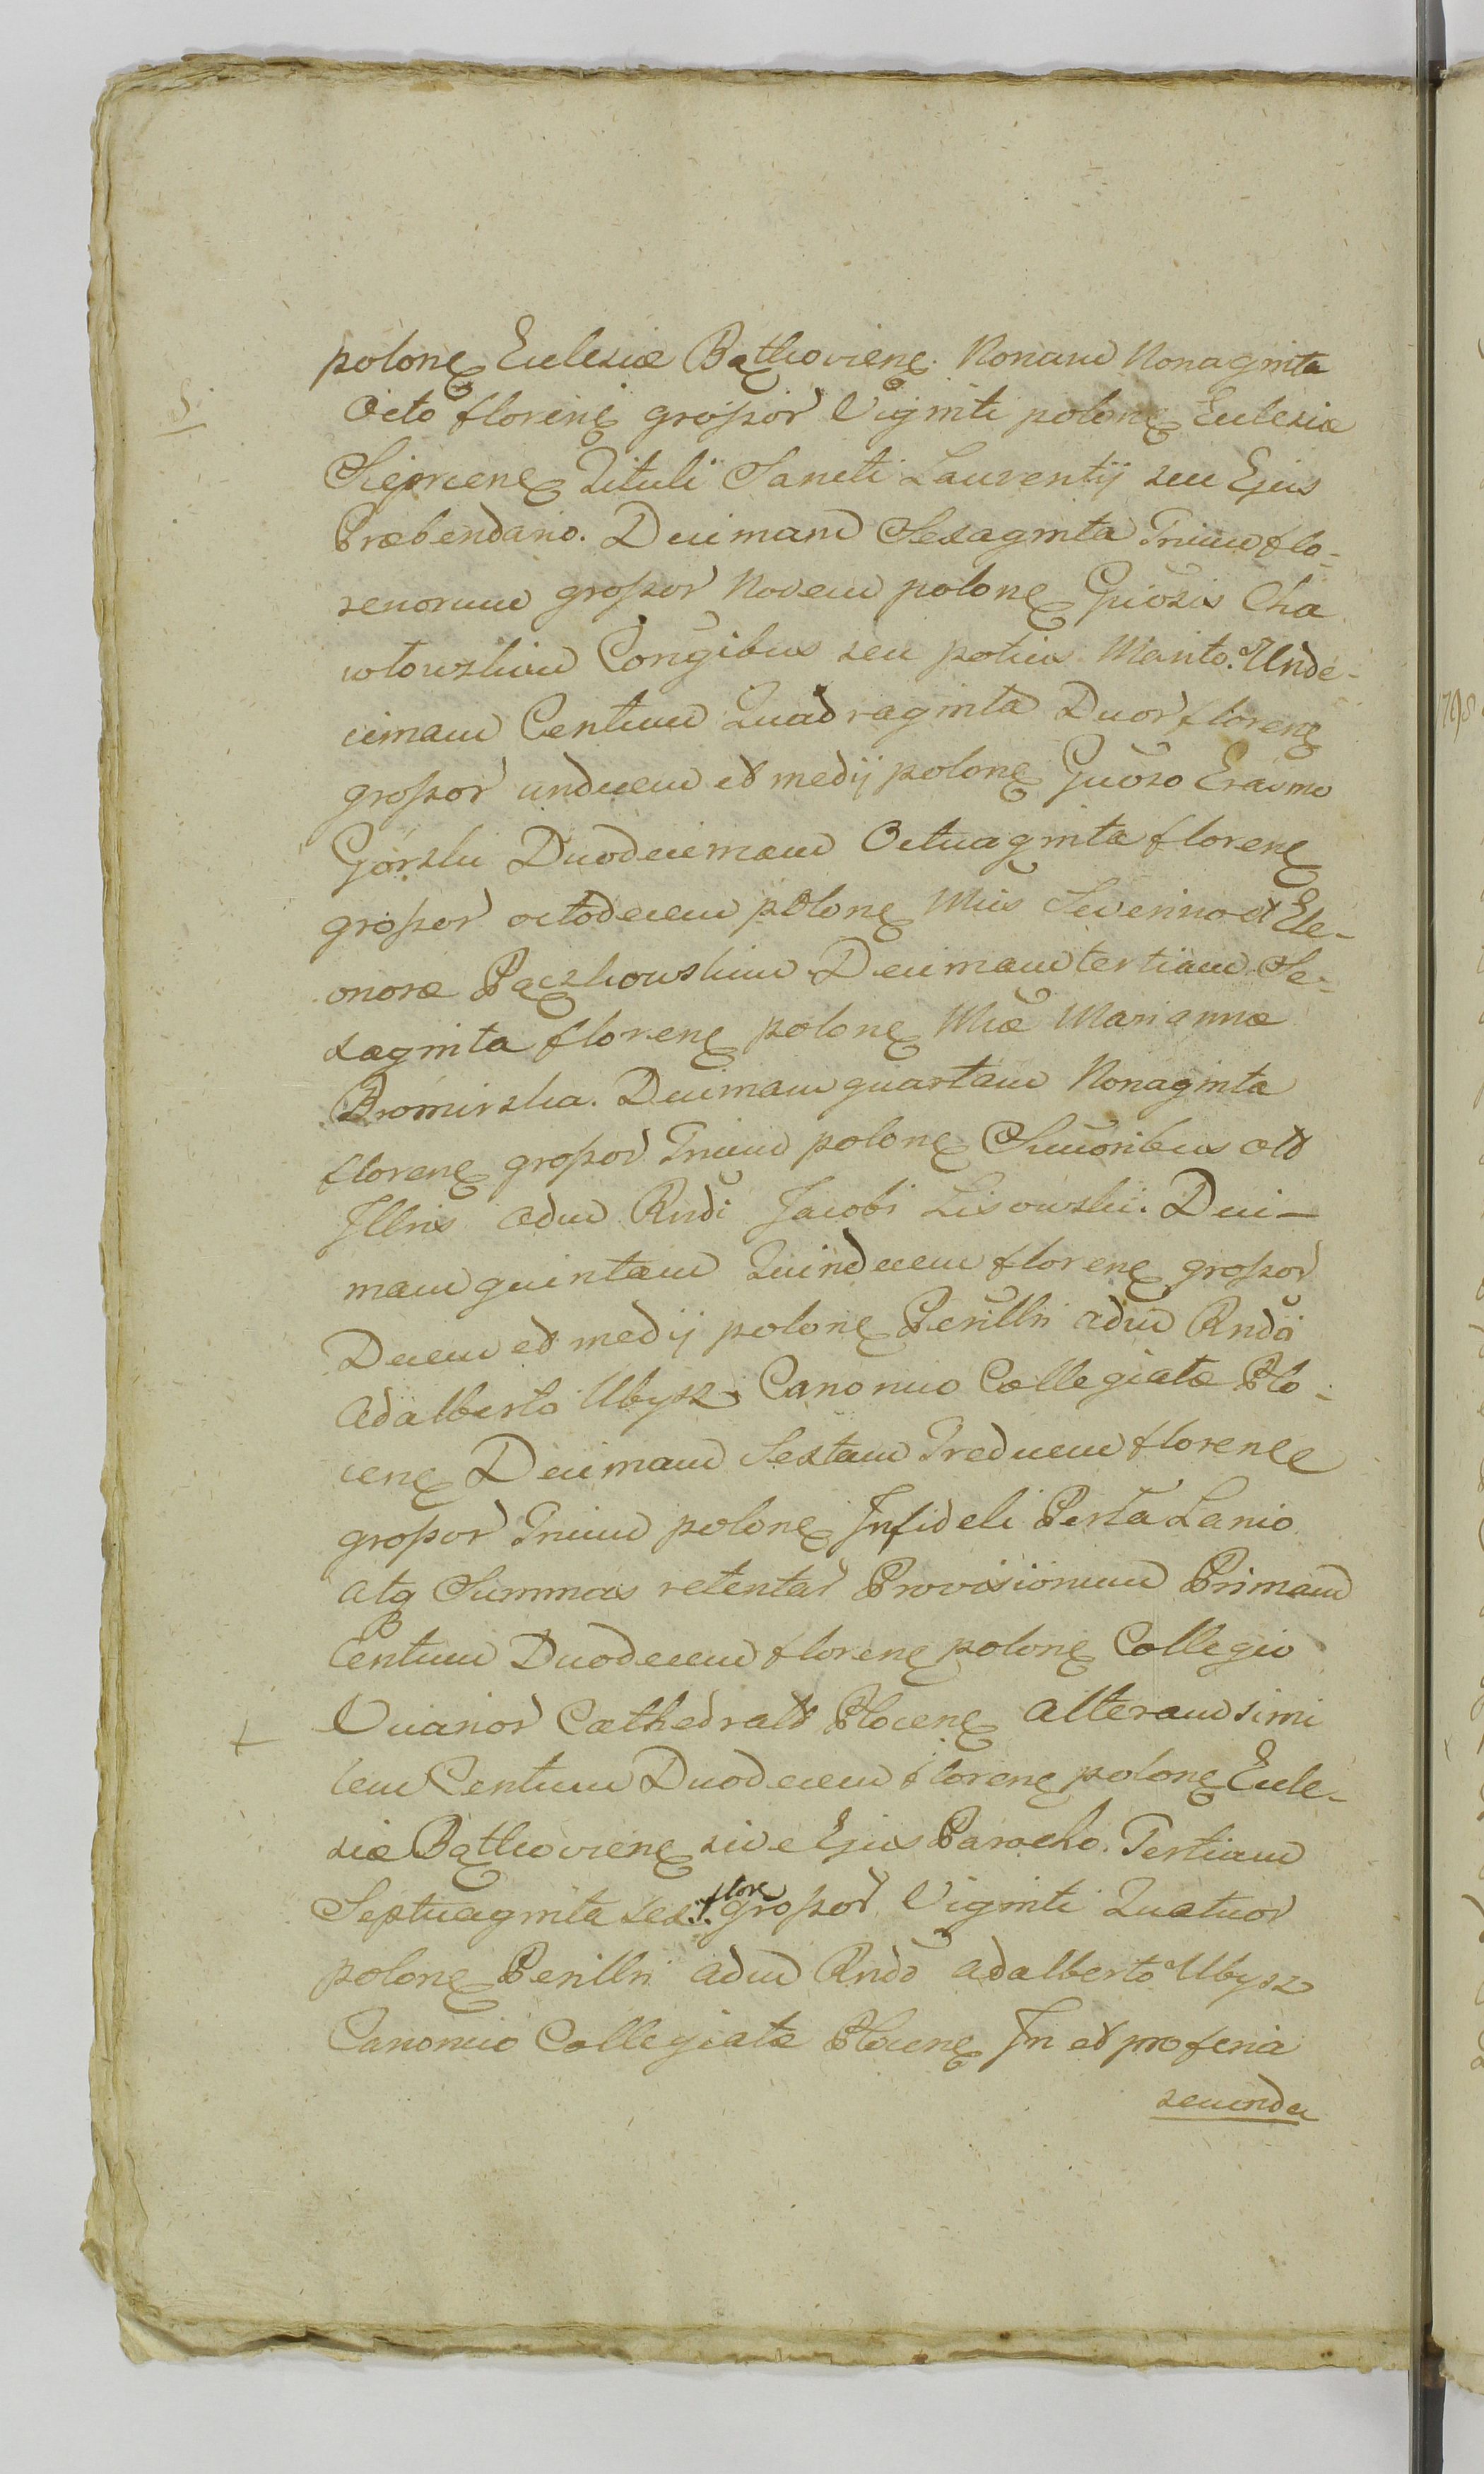 polonę Ecclesiæ Bątkovienę. Nonam Nonaginta
Octo florenę grossor Viginti polonę Ecclesiæ
Sieprcenę Tituli Sancti Laurentij seu Ejus
Præbendario. Decimam Sexaginta Trium flo-
renorum grossor Novem polonę Gnosis Cha
włowskim Congibus seu potius Marito. Unde-
cimam Centum Quadraginta Duor florenę
grossor undecem et medij polonę Gnoso Erasmo
Górski Duodecimam Octuaginta florenę
grossor octodecem polonę Mcis Severino et Ele-
onoræ Pączkowskim Decimam tertiam Se-
xaginta florenę polonę Mcæ Mariannæ
Bromirska. Decimam quartam Nonaginta
florenę grossor Trium polonę Sucoribus olt
Illris adm Rndi Jacobi Lisowski. Deci-
mam quintam Quindecem florenę grossor
Decem et medij polonę Perillri adm Rndo
Adalberto Ubysz Canonico Collegiatæ Plo-
cenę Decimam Sextam Tredecem florenę
grossor Trium polonę Infideli Perła Lanio
atq Summas retentar Provisionum Primam
Centum Duodecem florenę polonę Collegio
Vicarior Cathedralt Plocenę alteram simi
lem Centum Duodecem florenę polonę Eccle-
siæ Bątkovienę sive Ejus Parocho. Tertiam
Septuaginta sex flore grossor Viginti Quatuor
polonę Perillri adm Rndo Adalberto Ubysz
Canonico Collegiatæ Plocenę In et pro feria
secunda